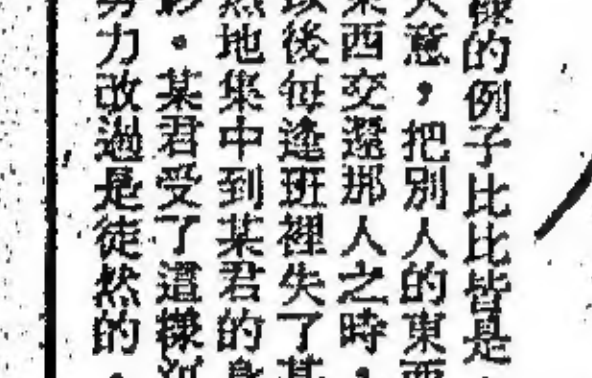 樣的例子比比皆是
大意，把別人的東西
東西交還那人之時，
以後每逢班裡失了某
然地集中到某君的身
。某君受了這樣
努力改過是徒然的。